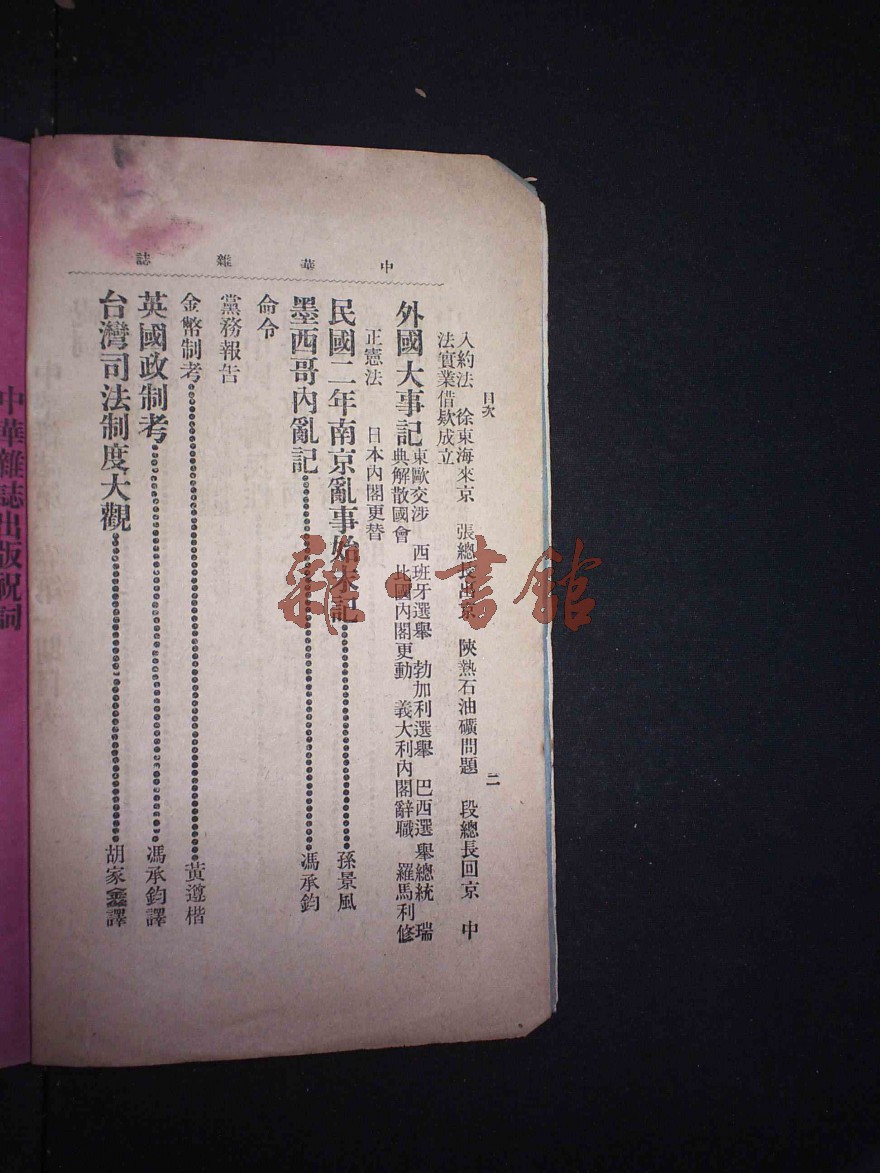 中華雜誌
目次
二
入約法　徐東海來京　張總長出京　陝熱石油礦問題　段總長回京　中
法實業借欵成立
外國大事記
東歐交涉　西班牙選舉　勃加利選舉　巴西選舉總統　瑞
典解散國會　比國內閣更動　義大利內閣辭職　羅馬利修
正憲法　日本內閣更替
民國二年南京亂事始末記……孫景風
墨西哥內亂記……馮承鈞
命令
黨務報告
金幣制考……黃遵楷
英國政制考……馮承鈞譯
台灣司法制度大觀……胡家鑫譯
中華雜誌出版祝詞
雜·書館